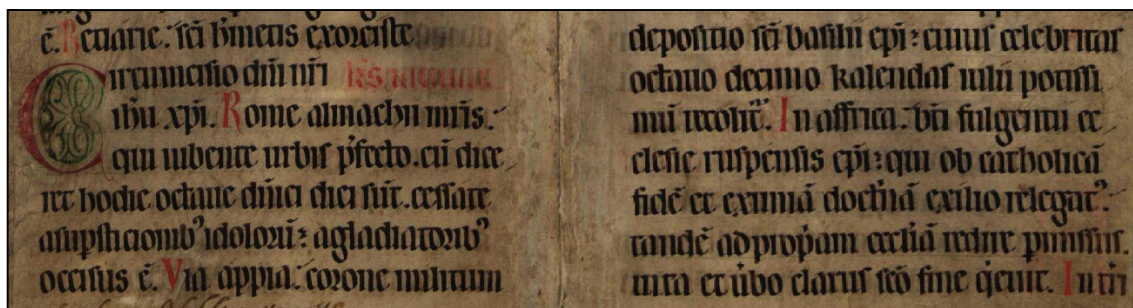 ē. Retiarie: sc̄i hʼmetis exorciste
Circumcisio dn̄i nr̄i kl's ianuarii
ih̄u xp̄i. Rome almachii mr̄is:
qui iubente urbis p̄fecto. cū dice
ret hodie octaue dn̄ici diei sūt. cessate
asupsticionibꝰ idolorū: agladiatoribꝰ
occisus ē. Via appia. corone militum
depositio sc̄i basilii ep̄i: cuius celebritas
octauo decimo kalendas iulii potissi
mū recolit᷑. In affrica. bt̄i fulgentii ec
clesie ruspensis ep̄i: qui ob catholicā
fidē et eximiā doctⁱnā exilio relegatꝰ:
tandē ad prop̄am eccl̄iā redire p̄missus.
uita et ūbo clarus sc̄o fine q̇euit. In tr̄i